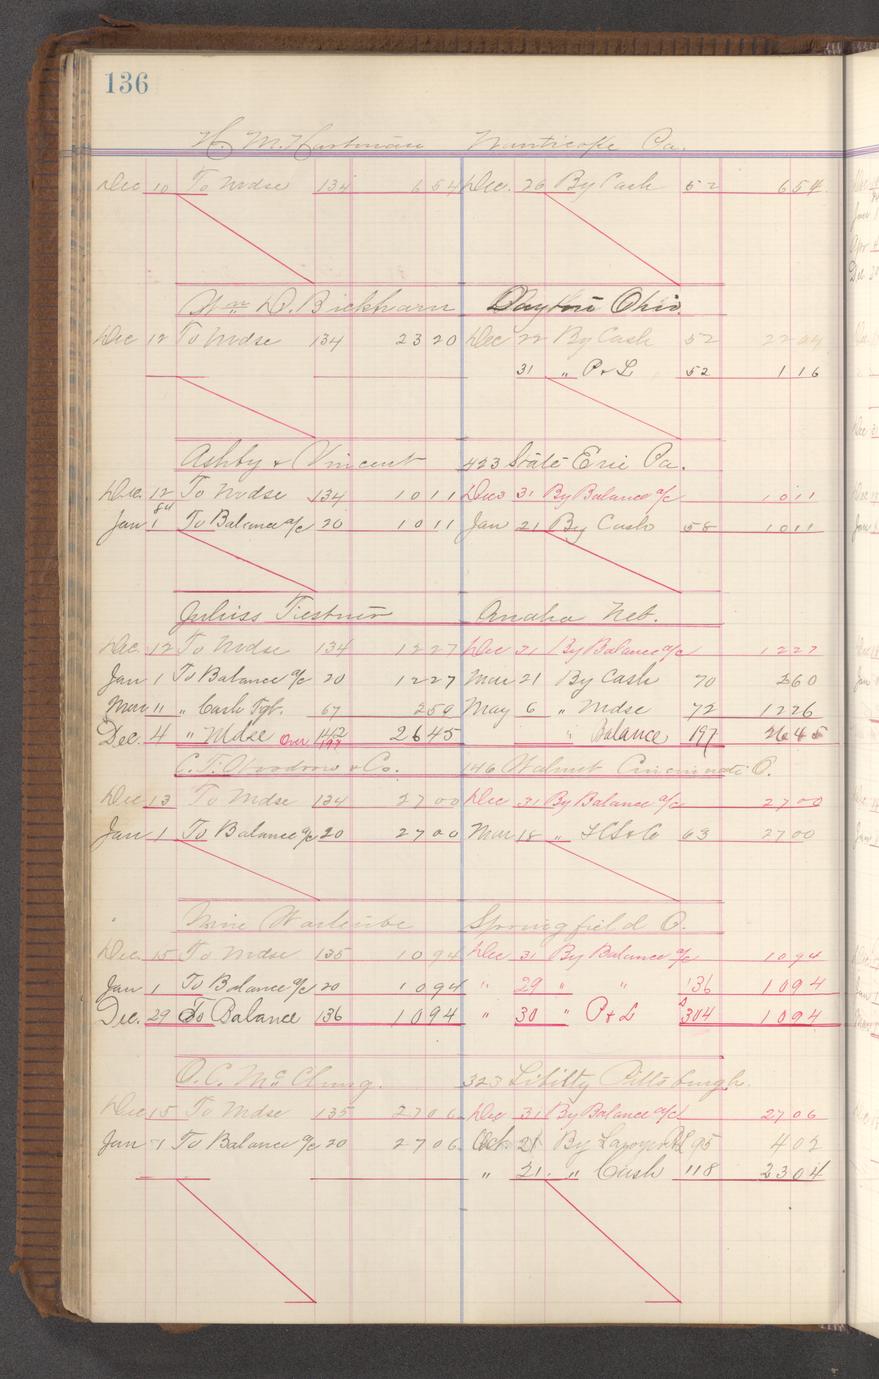 136
H. M. Hartman Nanticoke Pa.
Dec 10 To Mdse 134 6 54 Dec. 26 By Cash 52 6 54
Wm D. Bickham Dayton Ohio.
Dec 12 To Mdse 134 23 20 Dec 22 By Cash 52 22 04
31 " P & L 52 1 16
Ashby & Vincent 423 State Erie Pa.
Dec. 12 To Mdse 134 10 11 Dec 31 By Balance a/c 10 11
84
Jan 1 To Balance a/c 20 10 11 Jan 21 By Cash 58 10 11
Omaha Neb.
Dec. 12 To Mdse 134 12 27 Dec 31 By Balance a/c 12 27
Jan 1 To Balance a/c 20 12 27 Mar 21 By Cash 70 2 60
Mar 11 " Cash 67 2 50 May 6 " Mdse 72 12 26
Dec. 4 " Mdse Over 197 26 45 " Balance 197 26 45
C. F. Woodrow & Co. 146 Walnut Cincinnati O.
Dec 13 To Mdse 134 27 00 Dec 31 By Balance a/c 27 00
Jan 1 To Balance a/c 20 27 00 Mar 18 " 63 27 00
Springfield O.
Dec. 15 To Mdse 135 10 94 Dec 31 By Balance a/c 10 94
Jan 1 To Balance a/c 20 10 94 " 29 " " 136 10 94
Dec. 29 To Balance 136 10 94 " 30 " P & L 304 10 94
O. C. McClung. 323 Libitty Pittsburgh.
Dec 15 To Mdse 135 27 06 Dec 31 By Balance a/c 27 06
Jan 1 To Balance a/c 20 27 06 Oct. 21 By 95 4 02
" 21. " Cash 118 23 04